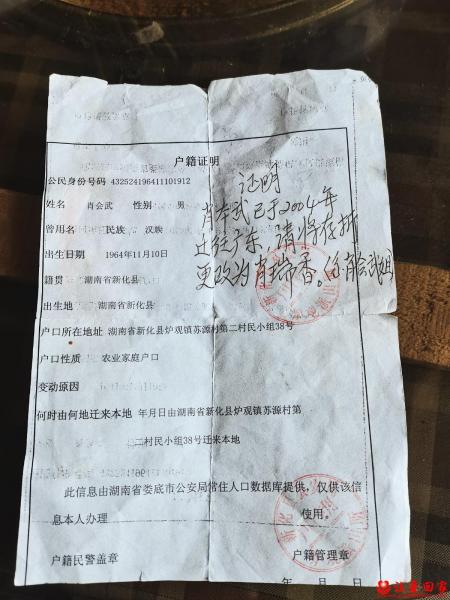 户籍证明
公民身份号码 432524196411101912
姓名 肖会武 性别 男
曾用名 民族 汉族
出生日期 1964年11月10日
籍贯 湖南省新化县
出生地 湖南省新化县
户口所在地址 湖南省新化县炉观镇苏源村第二村民小组38号
户口性质 农业家庭户口
变动原因
何时由何地迁来本地 年月日由湖南省新化县炉观镇苏源村第
二村民小组38号迁来本地
此信息由湖南省娄底市公安局常住人口数据库提供，仅供该信
息本人办理 使用。
户籍民警盖章 户籍管理章
年 月 日
证明
肖会武已于2004年
迁往广东，请将存折
更改为肖瑞香。
让爱回家